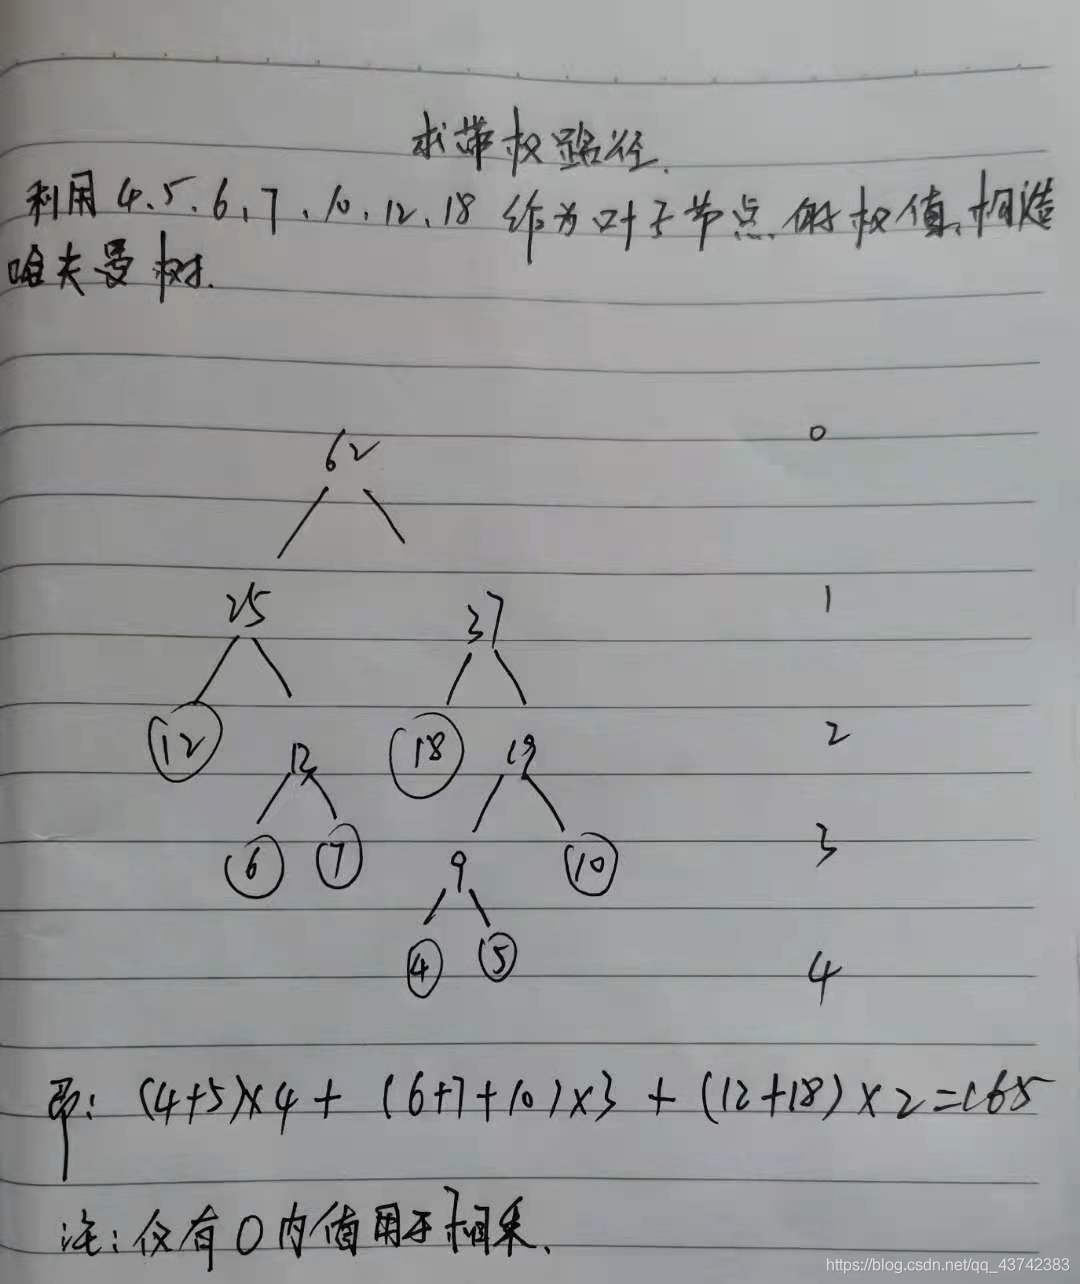 求带权路径.
利用 4、5、6、7、10、12、18 作为叶子节点的权值,构造
哈夫曼树.
62 0
25 37 1
12 13 18 19 2
6 7 9 10 3
4 5 4
即: (4+5)×4 + (6+7+10)×3 + (12+18)×2=165
注:仅有〇内值用于相乘、
https://blog.csdn.net/qq_43742383